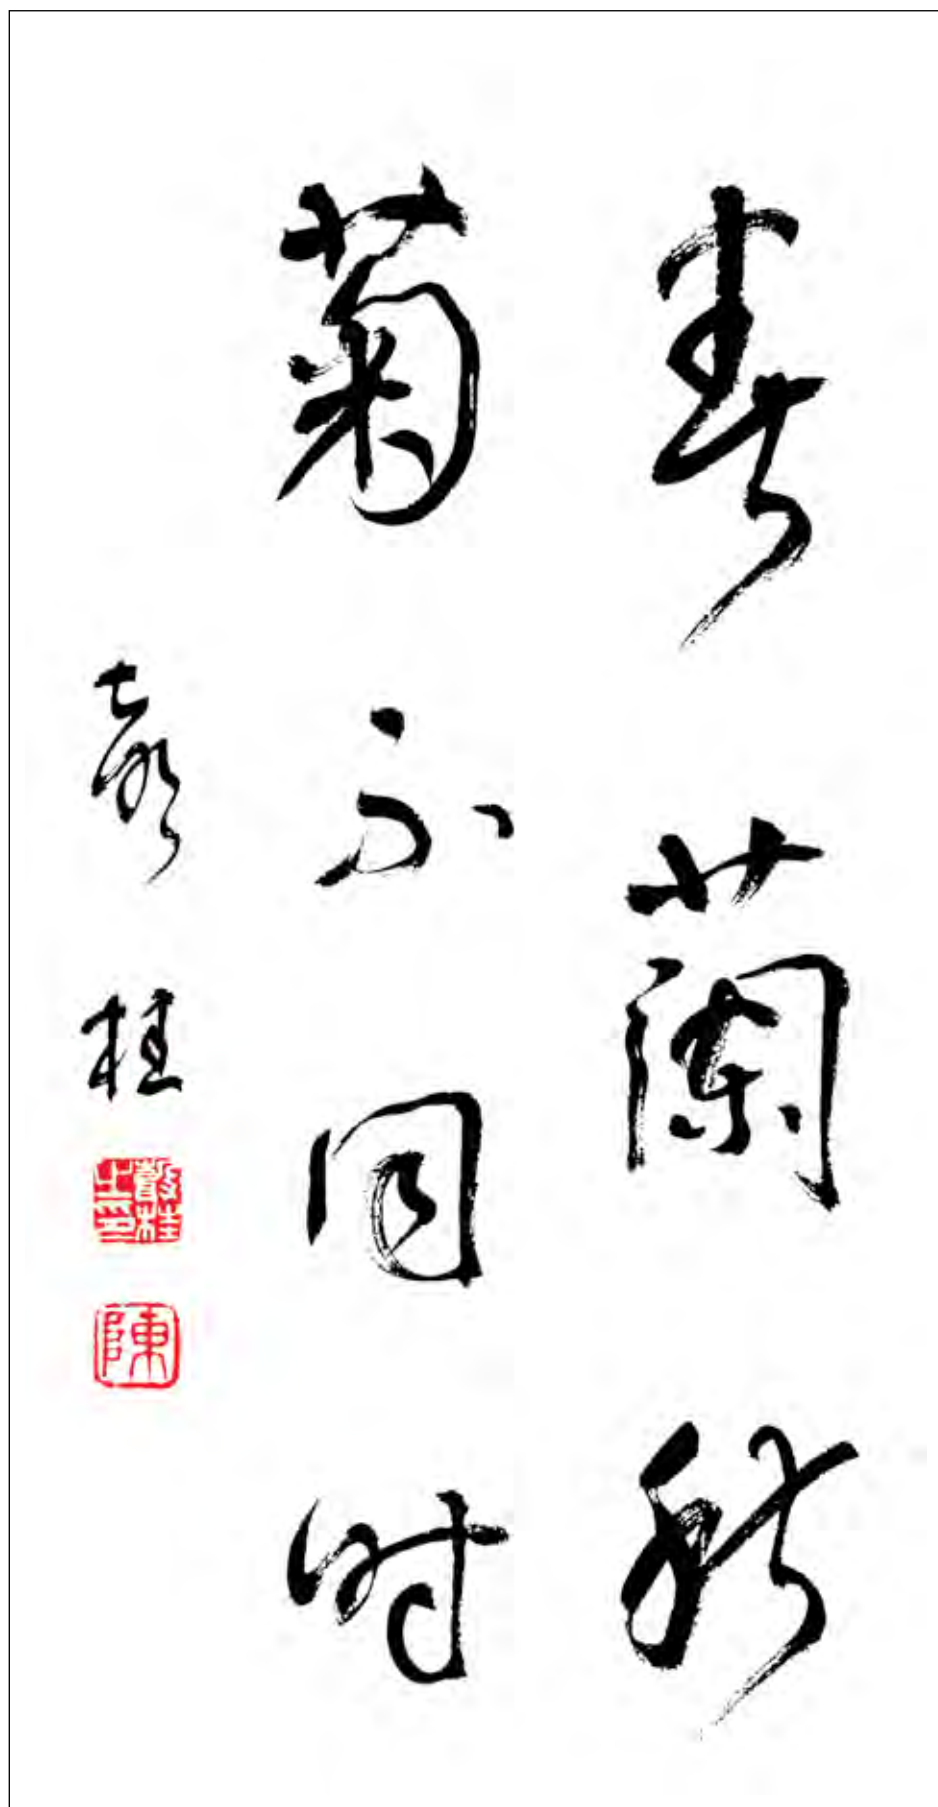 春蘭秋
菊不同時
毅桂
毅桂之印
陳